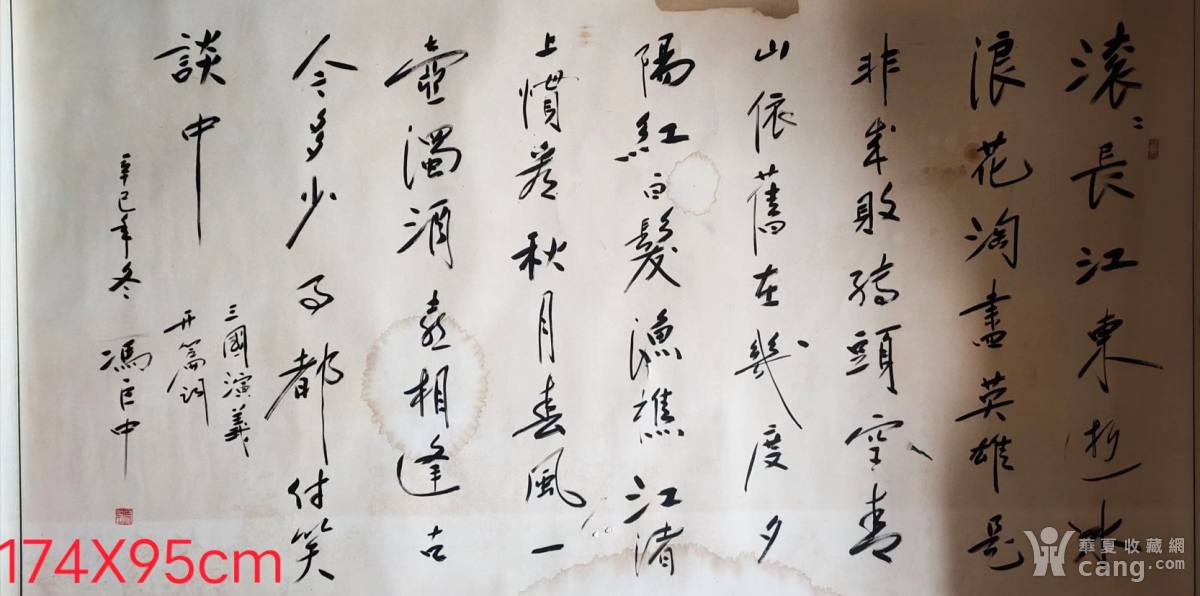 滚〻長江東逝水
浪花淘盡英雄是
非成敗轉頭空青
山依舊在幾度夕
陽紅白髮漁樵江渚
上慣看秋月春風一
壺濁酒喜相逢古
今多少事都付笑
談中
三國演義
开篇詞
辛巳年冬
174X95cm
華夏收藏網
cang.com